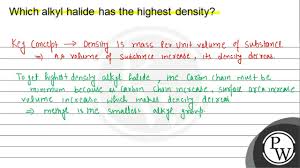 Which alkyl halide has the highest density?
Key Concept → Density is mass per unit volume of substance
⇒ As volume of substance increase, its density decreas.
To get highest density alkyl halide, the carbon chain must be
minimum because as carbon chain increase, surface area increase
volume increase which makes density decreas
⇒ methyl is the smallest alkyl group.
PW